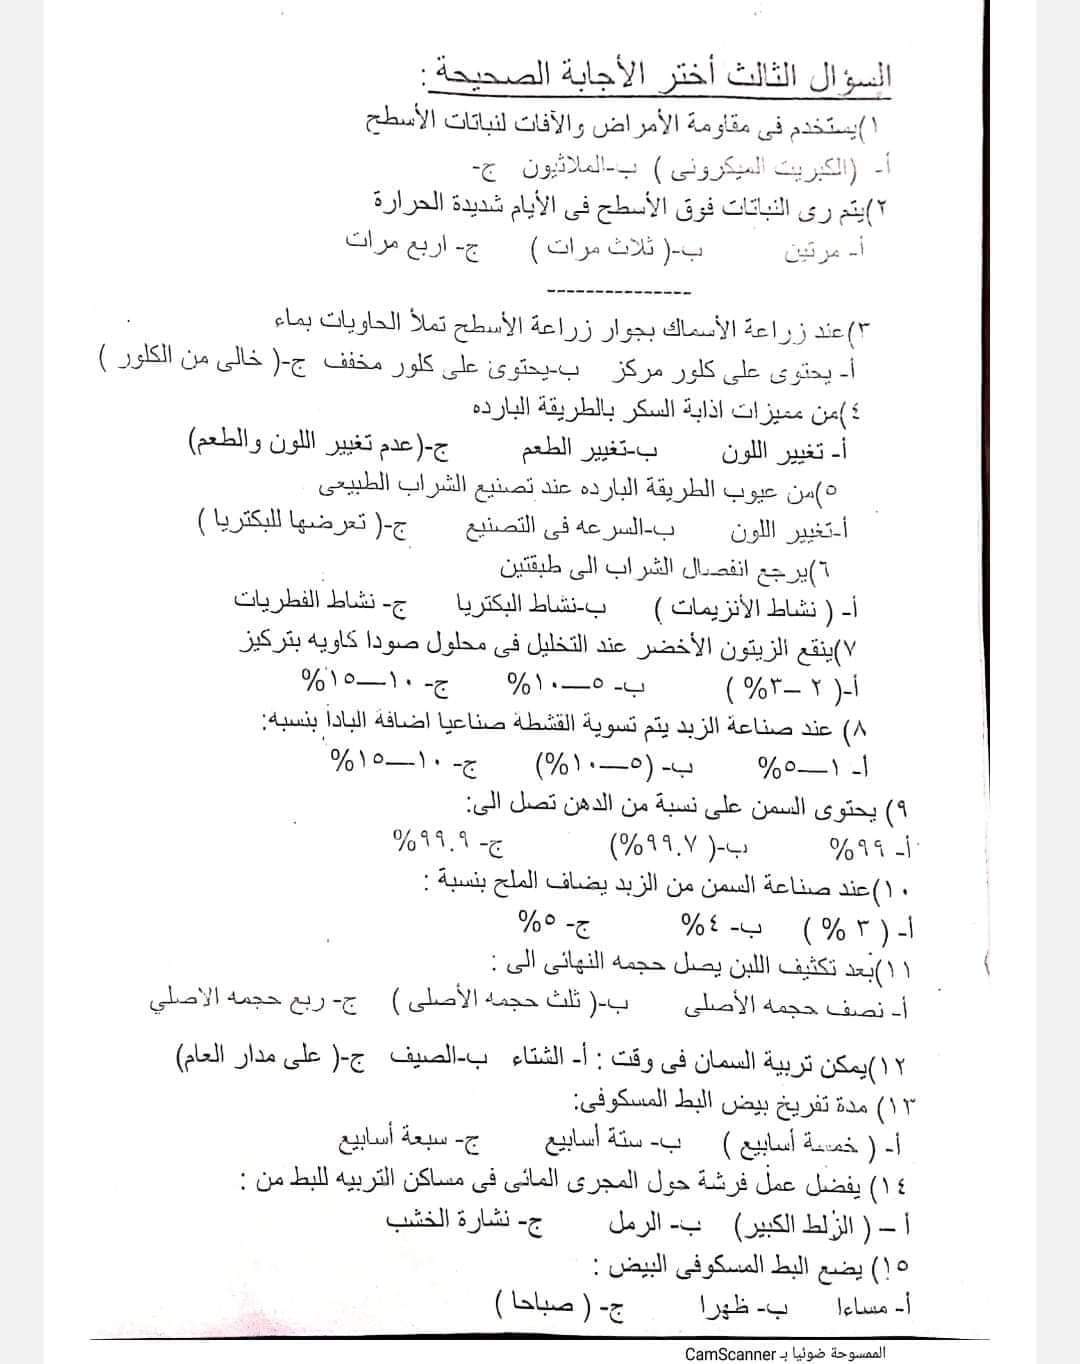 السؤال الثالث أختر الأجابة الصحيحة :
١)يستخدم فى مقاومة الأمراض والآفات لنباتات الأسطح
أ- (الكبريت الميكرونى ) ب-الملاثيون ج-
٢)يتم رى النباتات فوق الأسطح فى الأيام شديدة الحرارة
أ- مرتين ب-( ثلاث مرات ) ج- اربع مرات
---------------
٣)عند زراعة الأسماك بجوار زراعة الأسطح تملأ الحاويات بماء
أ- يحتوى على كلور مركز ب-يحتوى على كلور مخفف ج-( خالى من الكلور )
٤)من مميزات اذابة السكر بالطريقة البارده
أ- تغيير اللون ب-تغيير الطعم ج-(عدم تغيير اللون والطعم)
٥)من عيوب الطريقة البارده عند تصنيع الشراب الطبيعى
أ-تغيير اللون ب-السرعه فى التصنيع ج-( تعرضها للبكتريا )
٦)يرجع انفصال الشراب الى طبقتين
أ- ( نشاط الأنزيمات ) ب-نشاط البكتريا ج- نشاط الفطريات
٧)ينقع الزيتون الأخضر عند التخليل فى محلول صودا كاويه بتركيز
أ-( ٢ –٣% ) ب- ٥—١٠% ج- ١٠—١٥%
٨) عند صناعة الزبد يتم تسوية القشطة صناعيا اضافة البادأ بنسبة:
أ- ١—٥% ب- (٥—١٠%) ج- ١٠—١٥%
٩) يحتوى السمن على نسبة من الدهن تصل الى:
أ- ٩٩% ب-( ٩٩.٧%) ج- ٩٩.٩%
١٠)عند صناعة السمن من الزبد يضاف الملح بنسبة :
أ- ( ٣ % ) ب- ٤% ج- ٥%
١١)بعد تكثيف اللبن يصل حجمه النهائى الى :
أ- نصف حجمه الأصلى ب-( ثلث حجمه الأصلى ) ج- ربع حجمه الاصلي
١٢)يمكن تربية السمان فى وقت : أ- الشتاء ب-الصيف ج-( على مدار العام)
١٣) مدة تفريخ بيض البط المسكوفى:
أ- ( خمسة أسابيع ) ب- ستة أسابيع ج- سبعة أسابيع
١٤) يفضل عمل فرشة حول المجرى المائى فى مساكن التربيه للبط من :
أ – ( الزلط الكبير) ب- الرمل ج- نشارة الخشب
١٥) يضع البط المسكوفى البيض :
أ- مساءا ب- ظهرا ج- ( صباحا )
الممسوحة ضوئيا بـ CamScanner